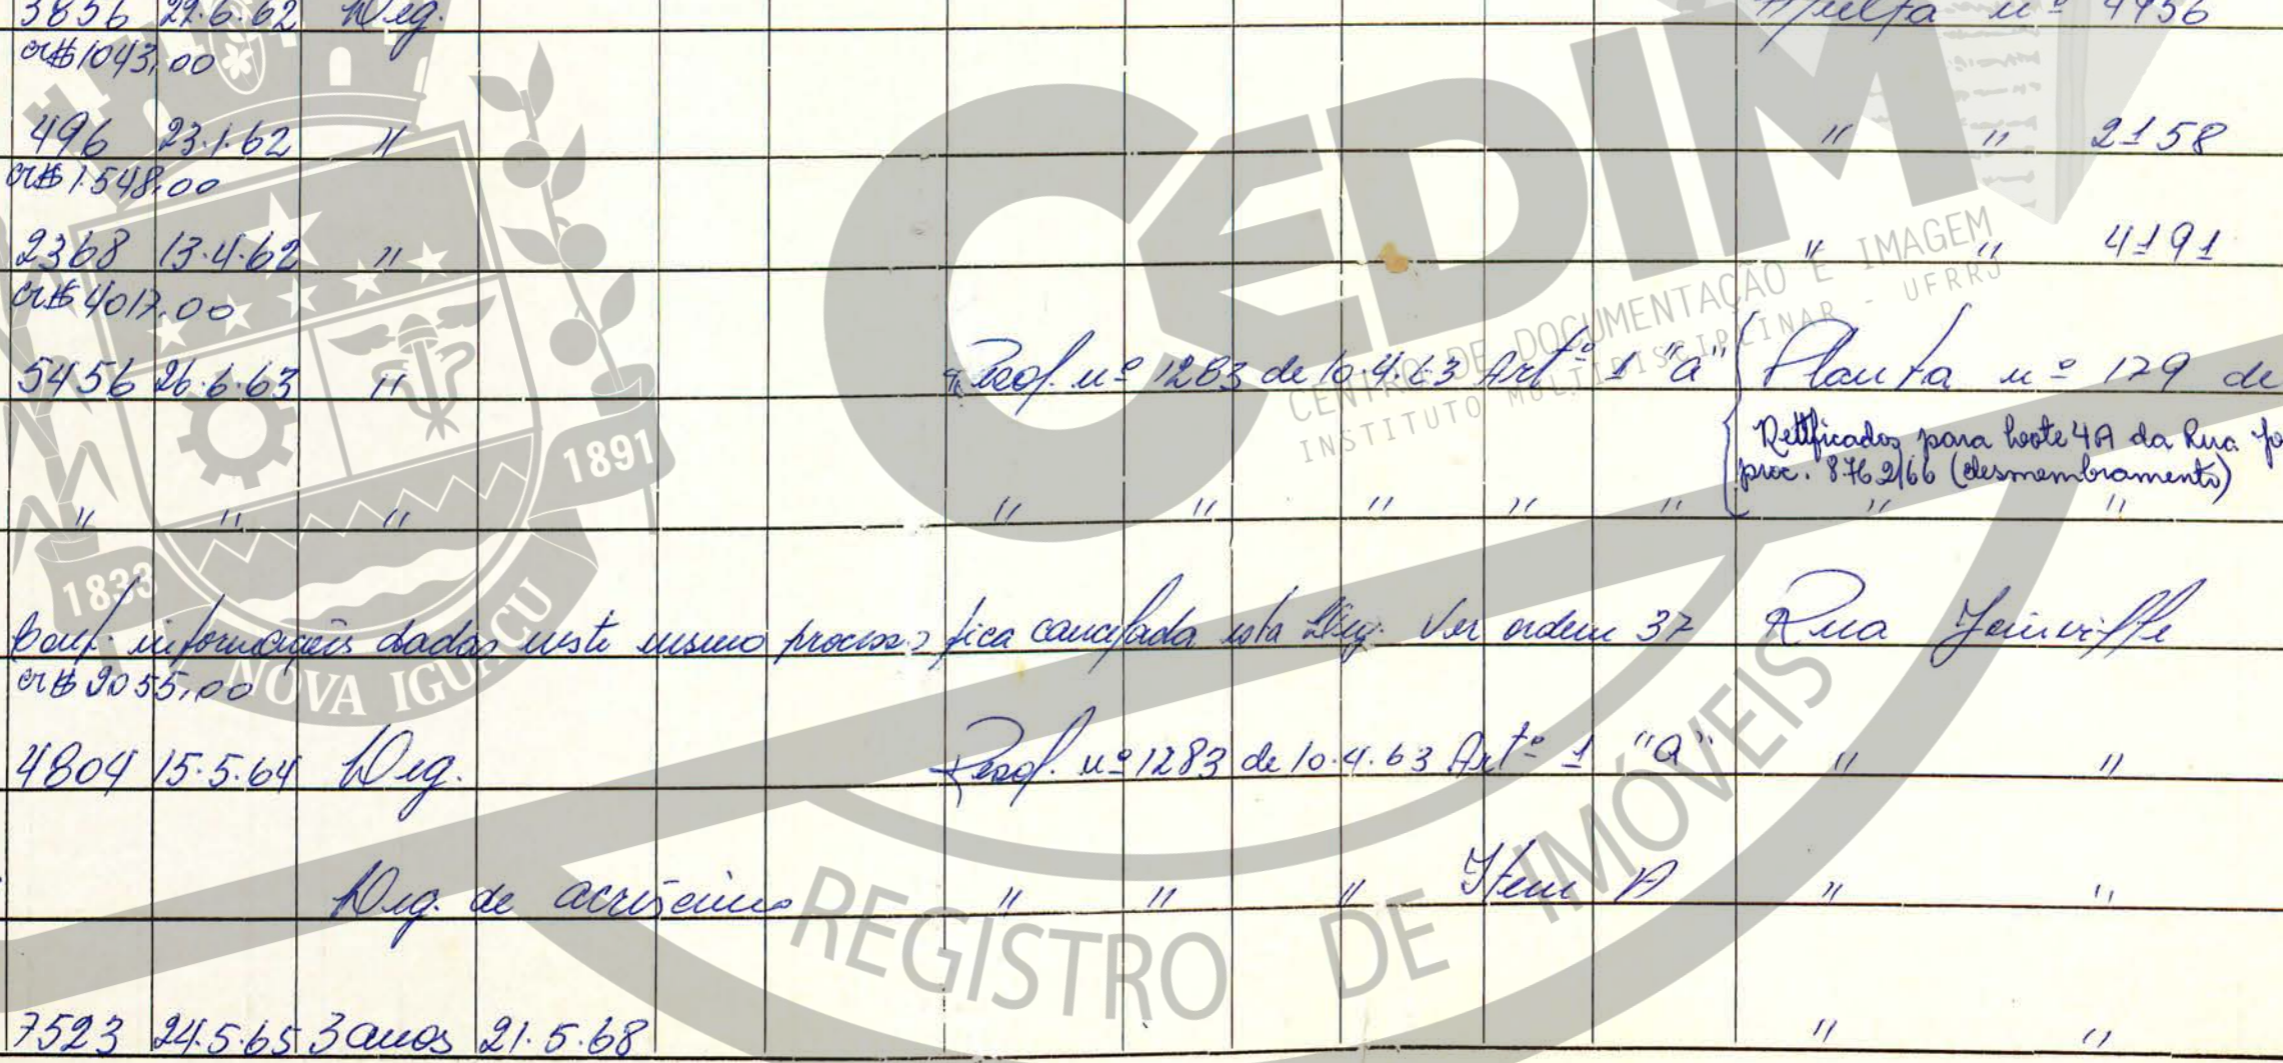 3856 29.6.62 Leg. Multa nº 4956
CR$ 1043,00
496 23.1.62 " " " 2158
CR$ 1.548,00
2368 13.4.62 " " " 4191
CR$ 4017,00
5456 26.6.63 " Resol. nº 1283 de 10.4.63 Artº 1 "a" Planta nº 179 de
Retificados para lote 4A da Rua
proc. 8762/66 (desmembramento)
" " " " " " " " " "
Conf. informações dadas neste mesmo processo fica cancelada esta Leg. Ver ordem 37 Rua Joinville
CR$ 9055,00
4804 15.5.64 Leg. Resol. nº 1283 de 10.4.63 Artº 1 "a" " "
Leg. de acréscimo " " " Item A " "
7523 24.5.65 3 anos 21.5.68 " "
CEDIM
CENTRO DE DOCUMENTAÇÃO E IMAGEM
INSTITUTO MULTIDISCIPLINAR - UFRRJ
1891
1833
NOVA IGUAÇU
REGISTRO DE IMÓVEIS